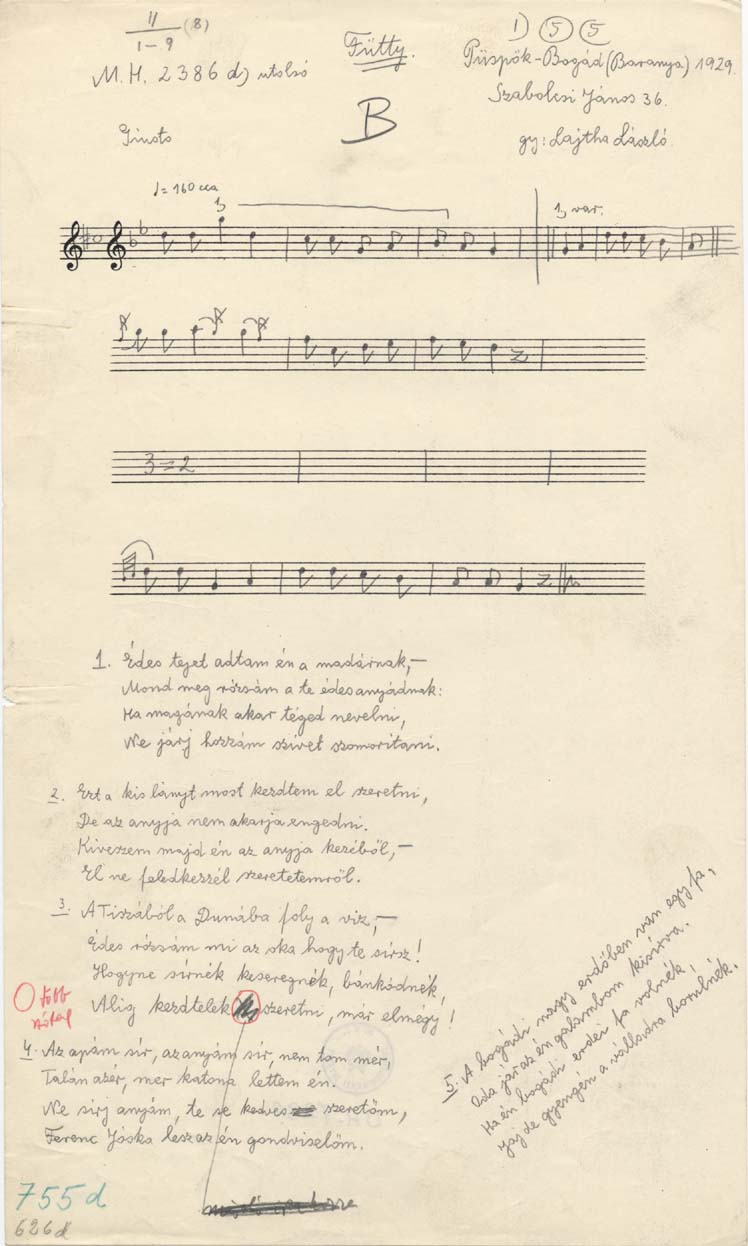 II (8)
1-9
M.H. 2386 d) utolsó
Fütty.
B
1) 5 5
Püspök-Bogád (Baranya) 1929.
Szabolcsi János 36.
gy: Lajtha László
Giusto
♩= 160 cca
1)
1) var.
3=2
1. Édes tejet adtam én a madárnak,—
Mond meg rózsám a te édesanyádnak:
Ha magának akar téged nevelni,
Ne járj hozzám szivet szomoritani.
2. Ezt a kis lányt most kezdtem el szeretni,
De az anyja nem akarja engedni.
Kiveszem majd én az anyja kezéből,—
El ne feledkezzél szeretetemről.
3. A Tiszából a Dunába foly a viz,—
Édes rózsám mi az oka hogy te sirsz!
Hogyne sirnék keseregnék, bánkódnék,
Alig kezdtelek szeretni, már elmegy!
több
4. Az apám sír, az anyám sír, nem tom mér,
Talán azér, mer katona lettem én.
Ne sirj anyám, te se kedves szeretőm,
Ferenc Jóska lesz az én gondviselőm.
5. A bogádi nagy erdőben van egy fa,
Oda jár az én galambom kisírva.
Ha én bogádi erdei fa volnék,
Jaj de gyengén a válladra borulnék.
755d
626d